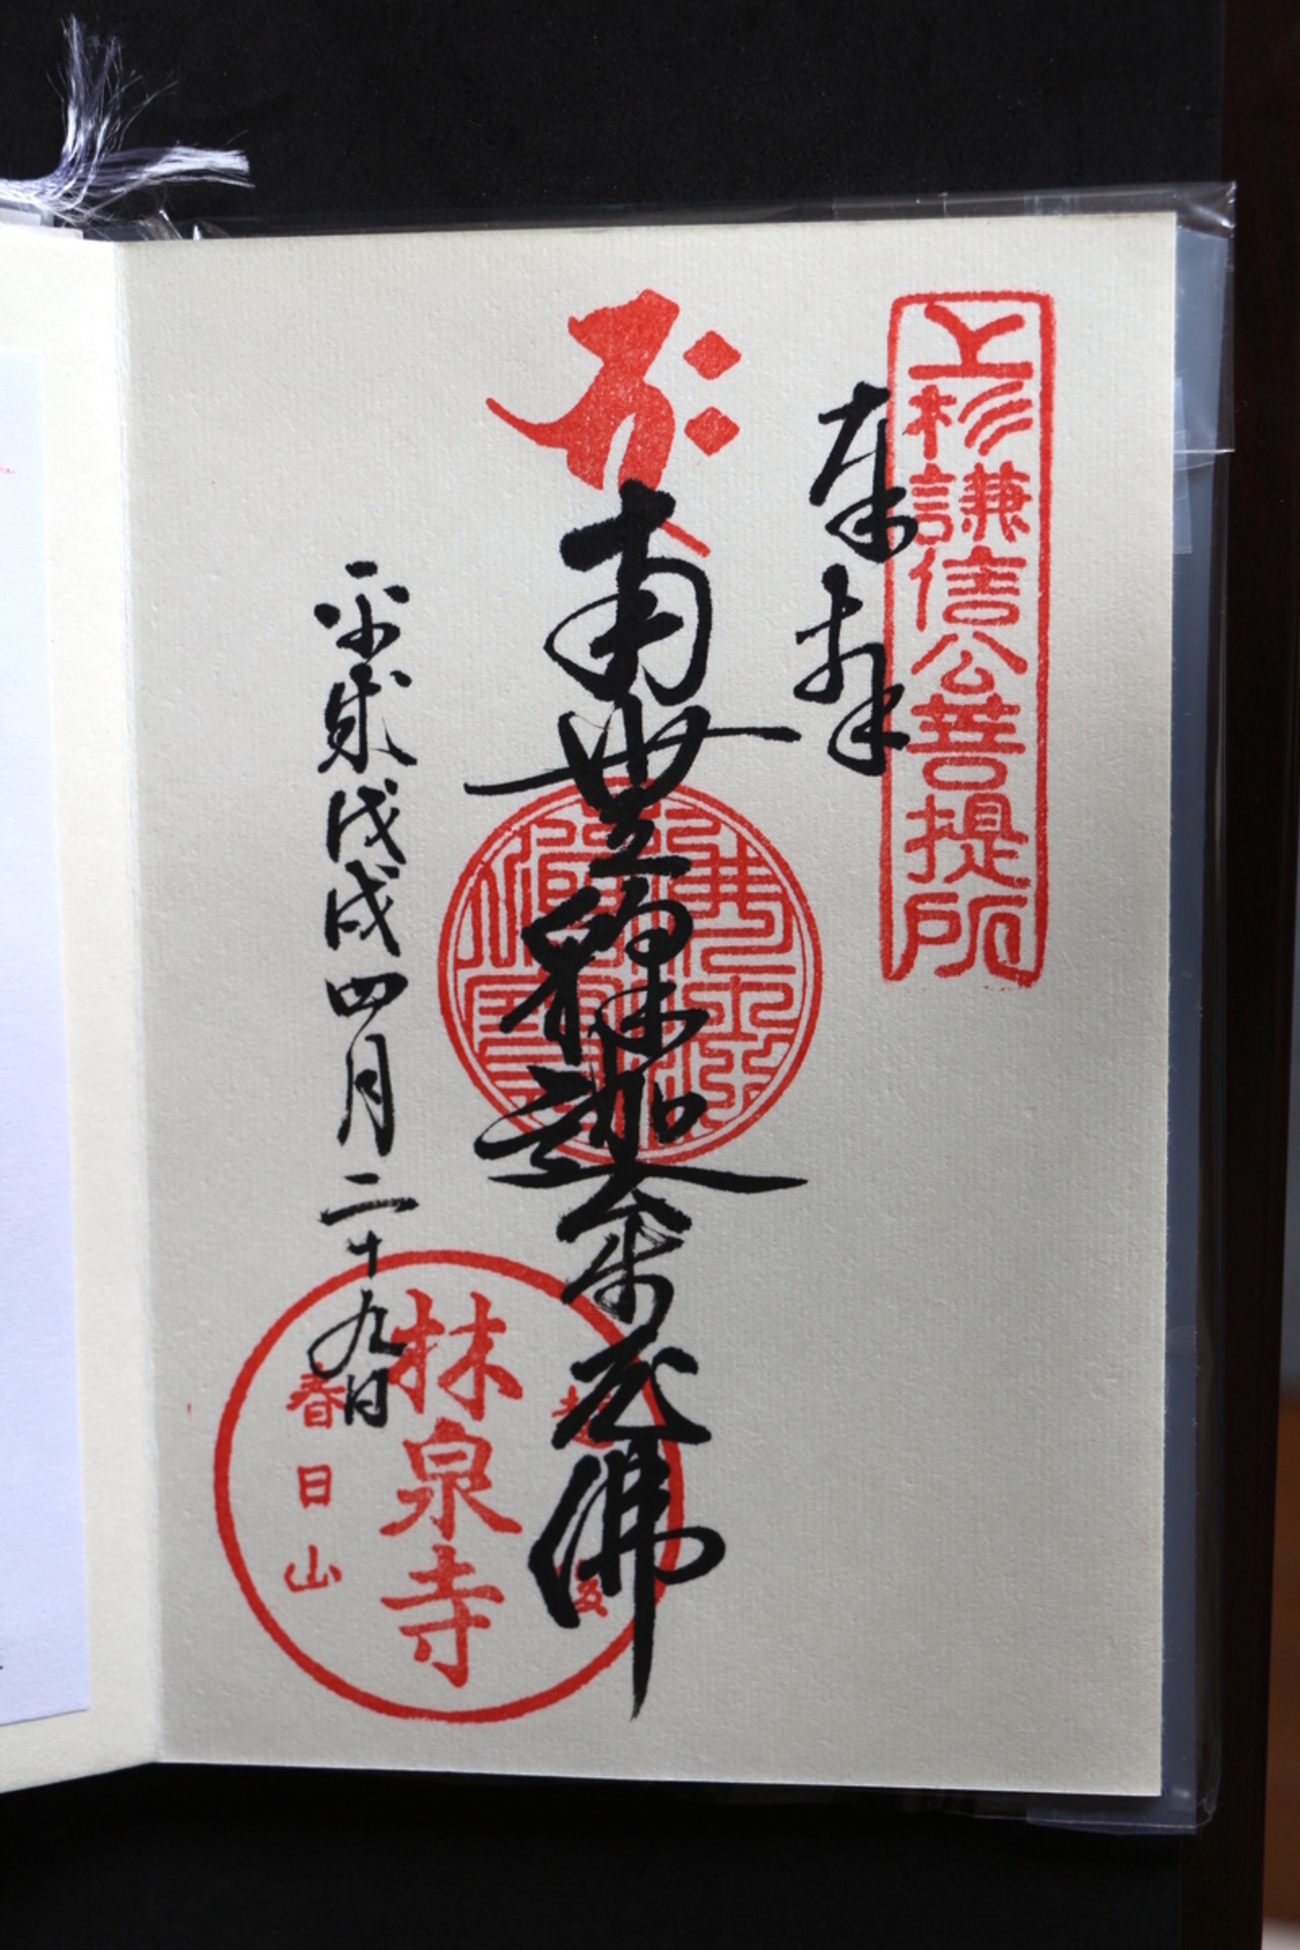 上杉謙信公菩提所
奉拝
南無釋迦牟尼佛
平成戊戌四月二十九日
林泉寺
春日山